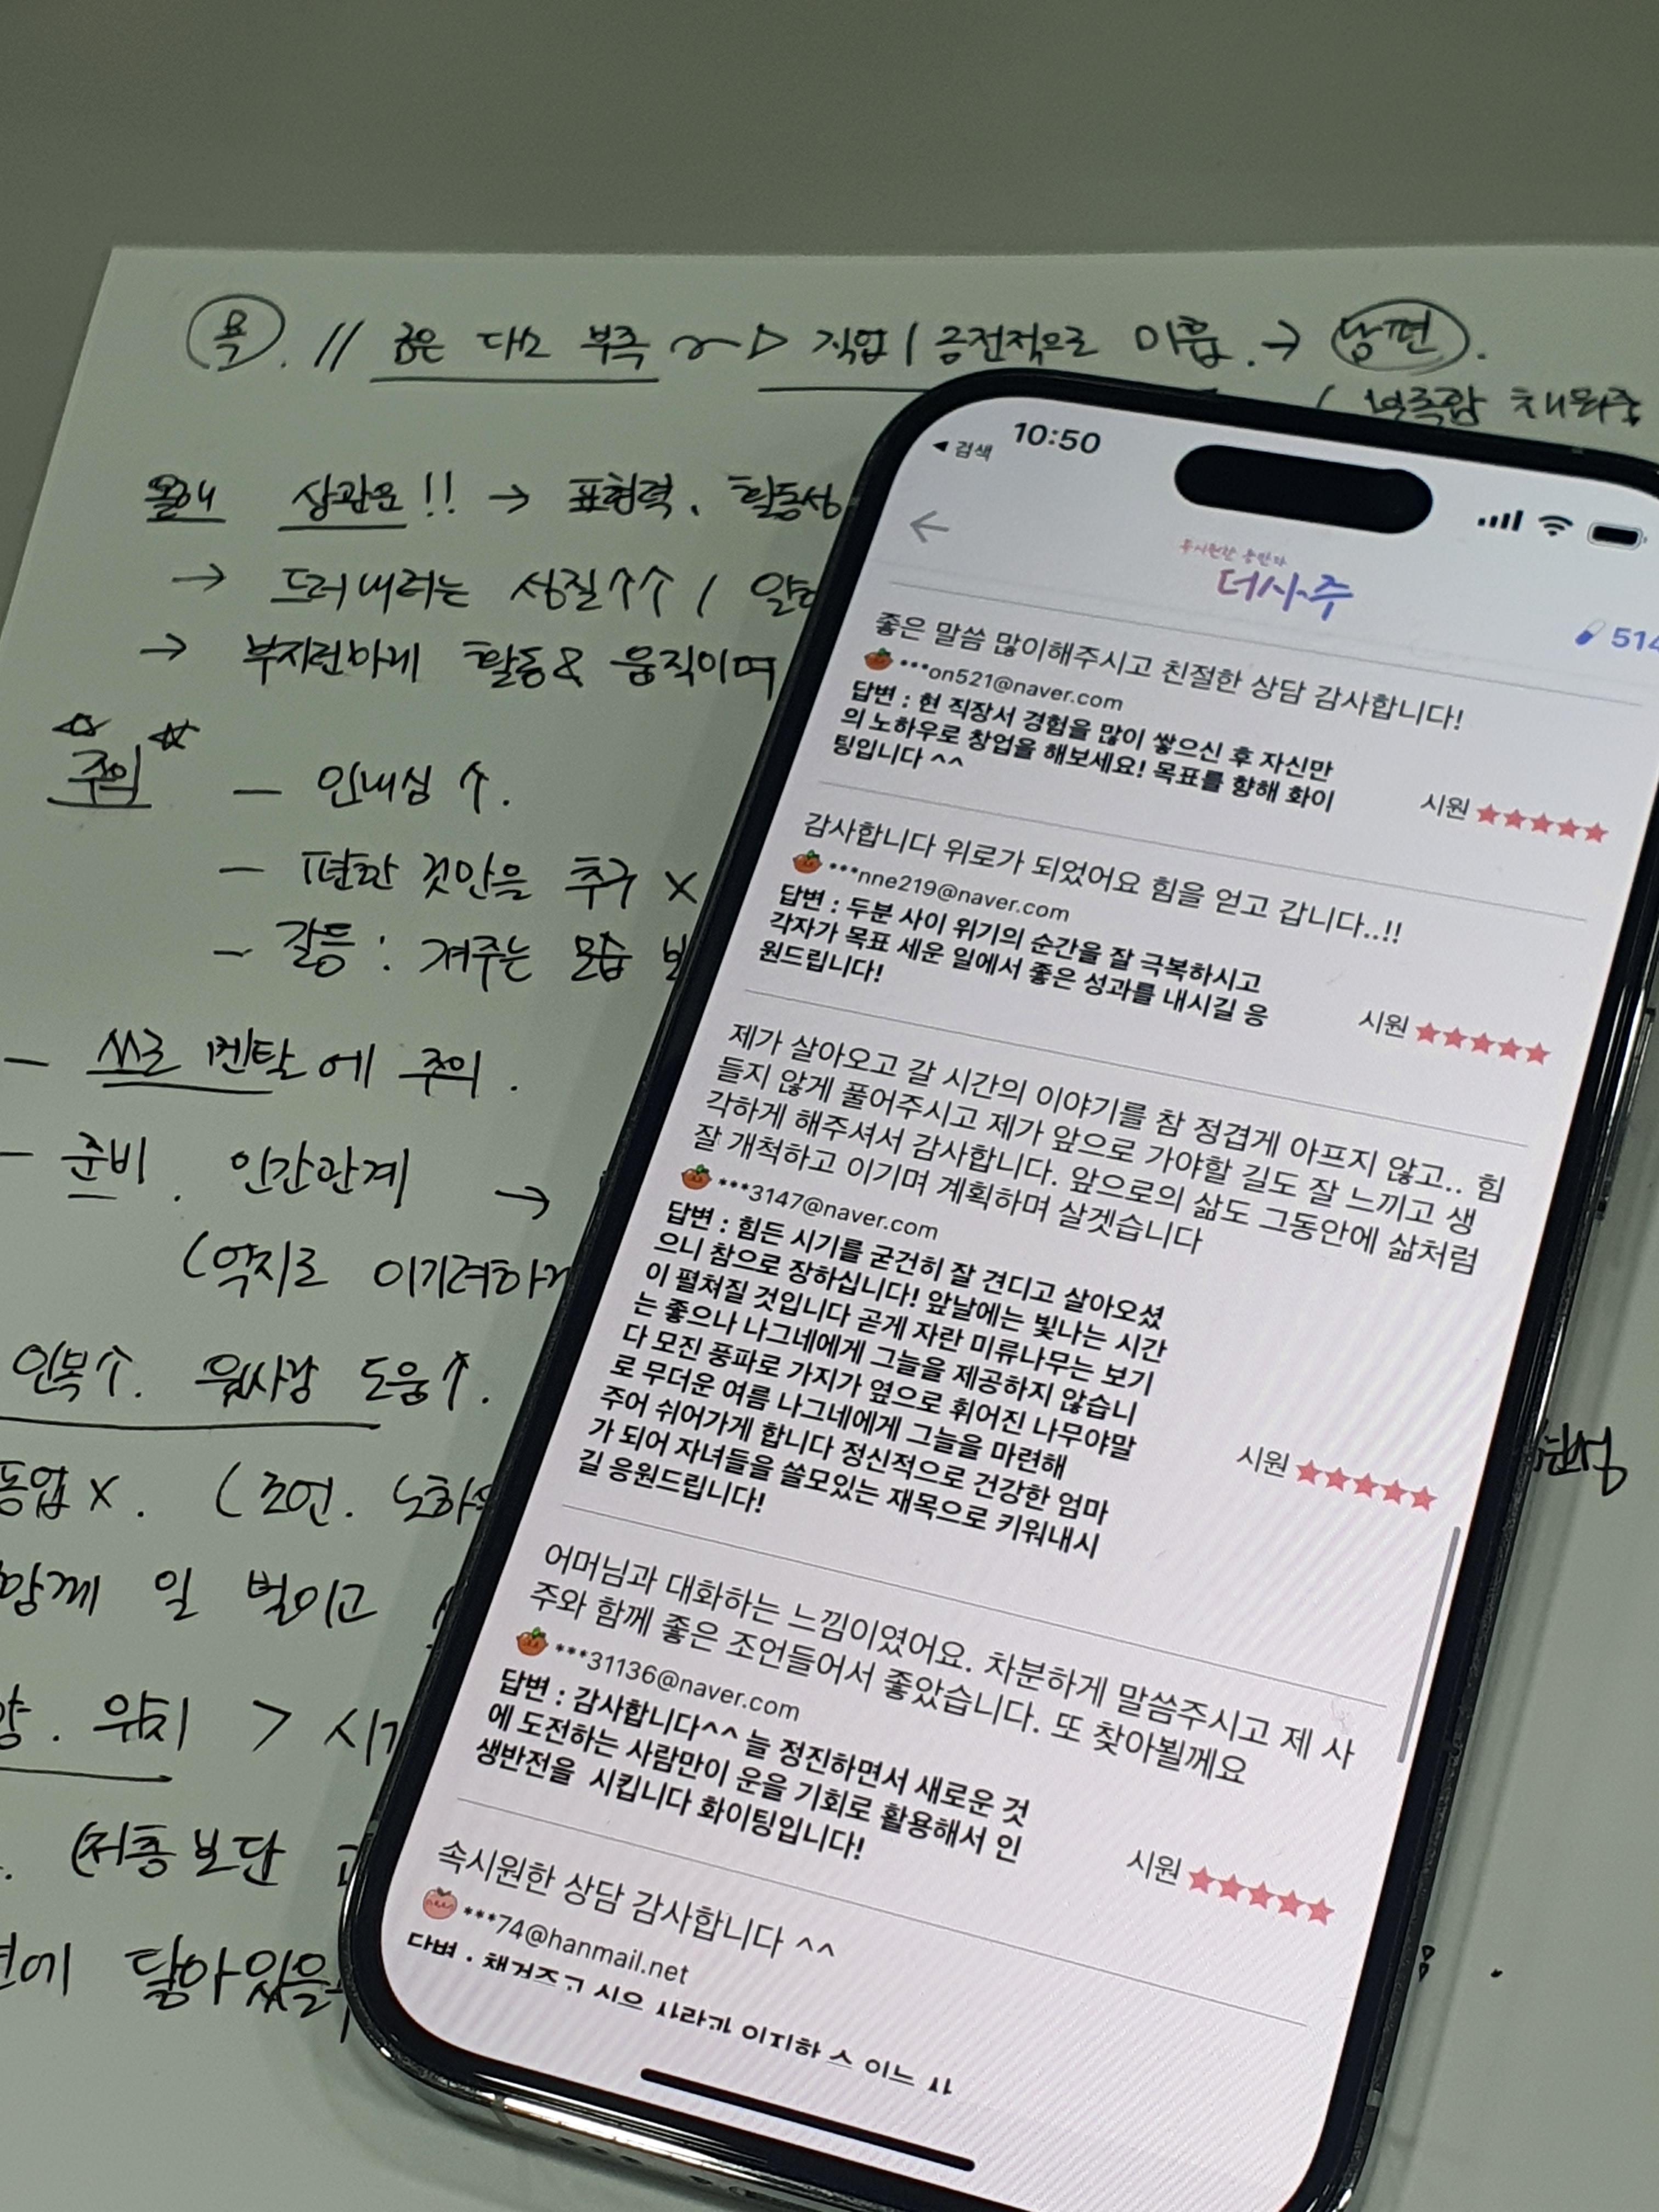 목. // 금은 다소 부족 ~> 직업 / 금전적으로 이득. → 남편.
(부족함 채워줌
올해 상관운!! → 표현력. 활동성
→ 드러내려는 성질↑↑ /
→ 부지런하게 활동& 움직이며
주의 - 인내심 ↑.
- 편한 것만을 추구 X
- 갈등 : 져주는 모습
- 쓰로 멘탈에 주의.
- 준비. 인간관계 →
(억지로 이기려하
인복↑. 윗사람 도움↑.
동업X. (조언. 노하우
함께 일 벌이고
위치 >
(저층보단
닿아있을
◀ 검색 10:50
속시원한 공간과
더사주
514
좋은 말씀 많이해주시고 친절한 상담 감사합니다!
***on521@naver.com
답변 : 현 직장서 경험을 많이 쌓으신 후 자신만
의 노하우로 창업을 해보세요! 목표를 향해 화이
팅입니다 ^^
시원 ★★★★★
감사합니다 위로가 되었어요 힘을 얻고 갑니다..!!
***nne219@naver.com
답변 : 두분 사이 위기의 순간을 잘 극복하시고
각자가 목표 세운 일에서 좋은 성과를 내시길 응
원드립니다!
시원 ★★★★★
제가 살아오고 갈 시간의 이야기를 참 정겹게 아프지 않고.. 힘
들지 않게 풀어주시고 제가 앞으로 가야할 길도 잘 느끼고 생
각하게 해주셔서 감사합니다. 앞으로의 삶도 그동안에 삶처럼
잘 개척하고 이기며 계획하며 살겟습니다
***3147@naver.com
답변 : 힘든 시기를 굳건히 잘 견디고 살아오셨
으니 참으로 장하십니다! 앞날에는 빛나는 시간
이 펼쳐질 것입니다 곧게 자란 미류나무는 보기
는 좋으나 나그네에게 그늘을 제공하지 않습니
다 모진 풍파로 가지가 옆으로 휘어진 나무야말
로 무더운 여름 나그네에게 그늘을 마련해
주어 쉬어가게 합니다 정신적으로 건강한 엄마
가 되어 자녀들을 쓸모있는 재목으로 키워내시
길 응원드립니다!
시원 ★★★★★
어머님과 대화하는 느낌이였어요. 차분하게 말씀주시고 제 사
주와 함께 좋은 조언들어서 좋았습니다. 또 찾아뵐께요
***31136@naver.com
답변 : 감사합니다^^ 늘 정진하면서 새로운 것
에 도전하는 사람만이 운을 기회로 활용해서 인
생반전을 시킵니다 화이팅입니다!
시원 ★★★★★
속시원한 상담 감사합니다 ^^
***74@hanmail.net